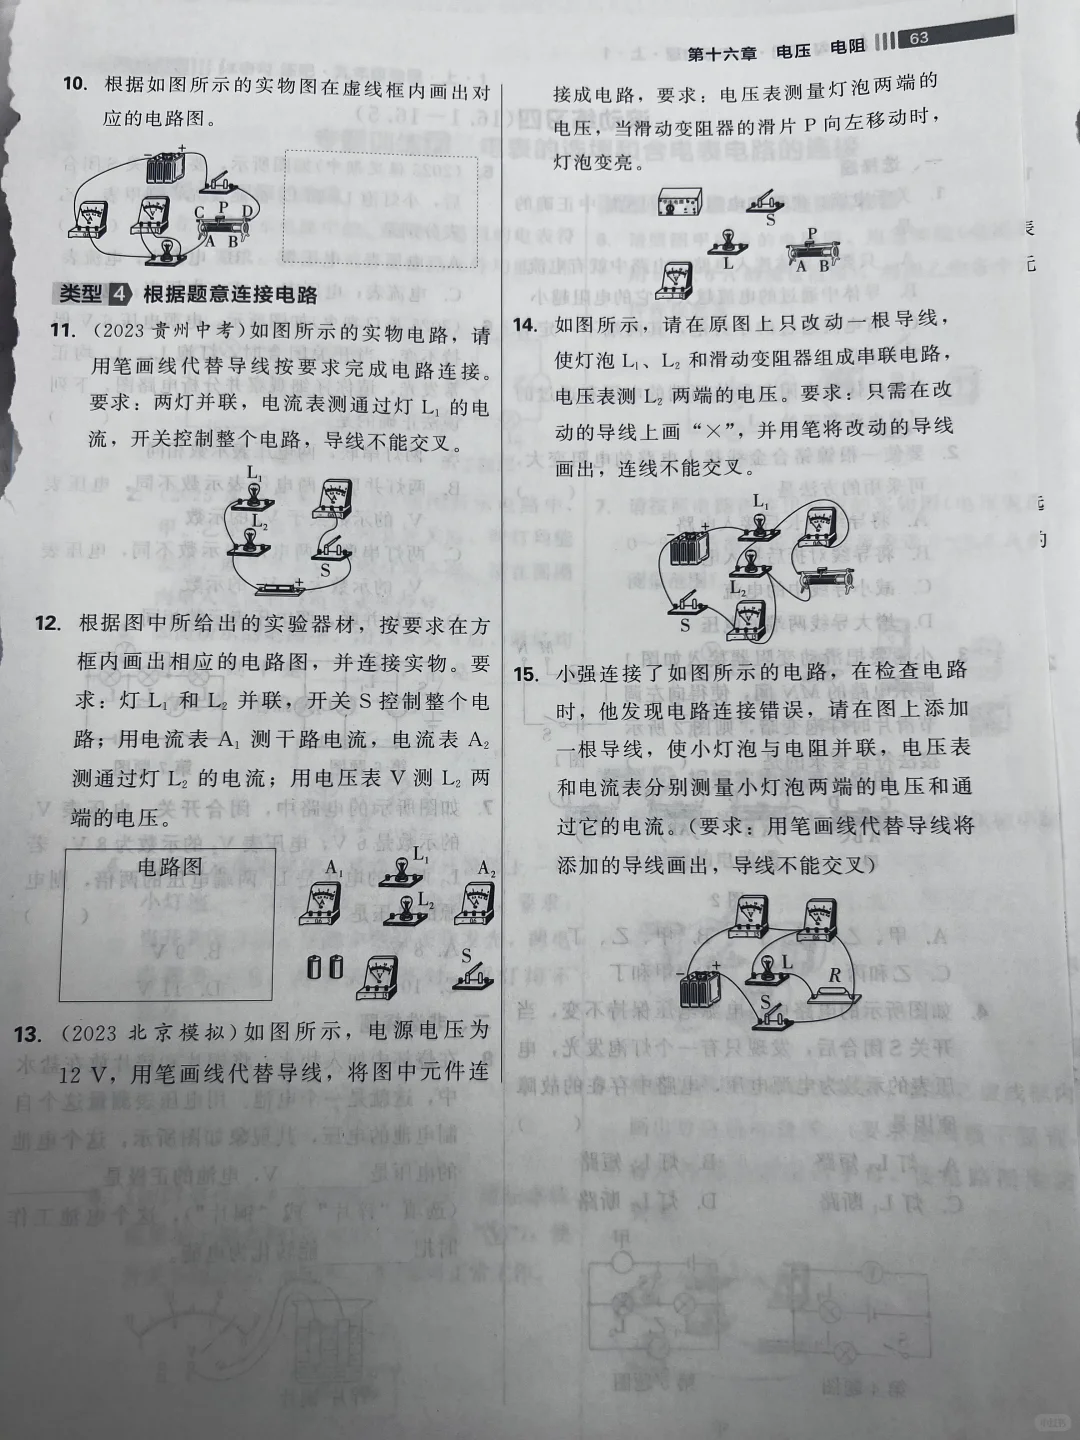 第十六章 电压 电阻 63
10. 根据如图所示的实物图在虚线框内画出对
应的电路图。
- +
C P D
A B
类型4 根据题意连接电路
11. (2023贵州中考)如图所示的实物电路，请
用笔画线代替导线按要求完成电路连接。
要求：两灯并联，电流表测通过灯 L₁ 的电
流，开关控制整个电路，导线不能交叉。
L₁
L₂
S
- +
12. 根据图中所给出的实验器材，按要求在方
框内画出相应的电路图，并连接实物。要
求：灯 L₁ 和 L₂ 并联，开关 S 控制整个电
路；用电流表 A₁ 测干路电流，电流表 A₂
测通过灯 L₂ 的电流；用电压表 V 测 L₂ 两
端的电压。
电路图
A₁ L₁ A₂
L₂
S
13. (2023 北京模拟)如图所示，电源电压为
12 V，用笔画线代替导线，将图中元件连
接成电路，要求：电压表测量灯泡两端的
电压，当滑动变阻器的滑片 P 向左移动时，
灯泡变亮。
S
L
P
A B
14. 如图所示，请在原图上只改动一根导线，
使灯泡 L₁、L₂ 和滑动变阻器组成串联电路，
电压表测 L₂ 两端的电压。要求：只需在改
动的导线上画“×”，并用笔将改动的导线
画出，连线不能交叉。
L₁
- +
L₂
S
15. 小强连接了如图所示的电路，在检查电路
时，他发现电路连接错误，请在图上添加
一根导线，使小灯泡与电阻并联，电压表
和电流表分别测量小灯泡两端的电压和通
过它的电流。(要求：用笔画线代替导线将
添加的导线画出，导线不能交叉)
- +
L
R
S